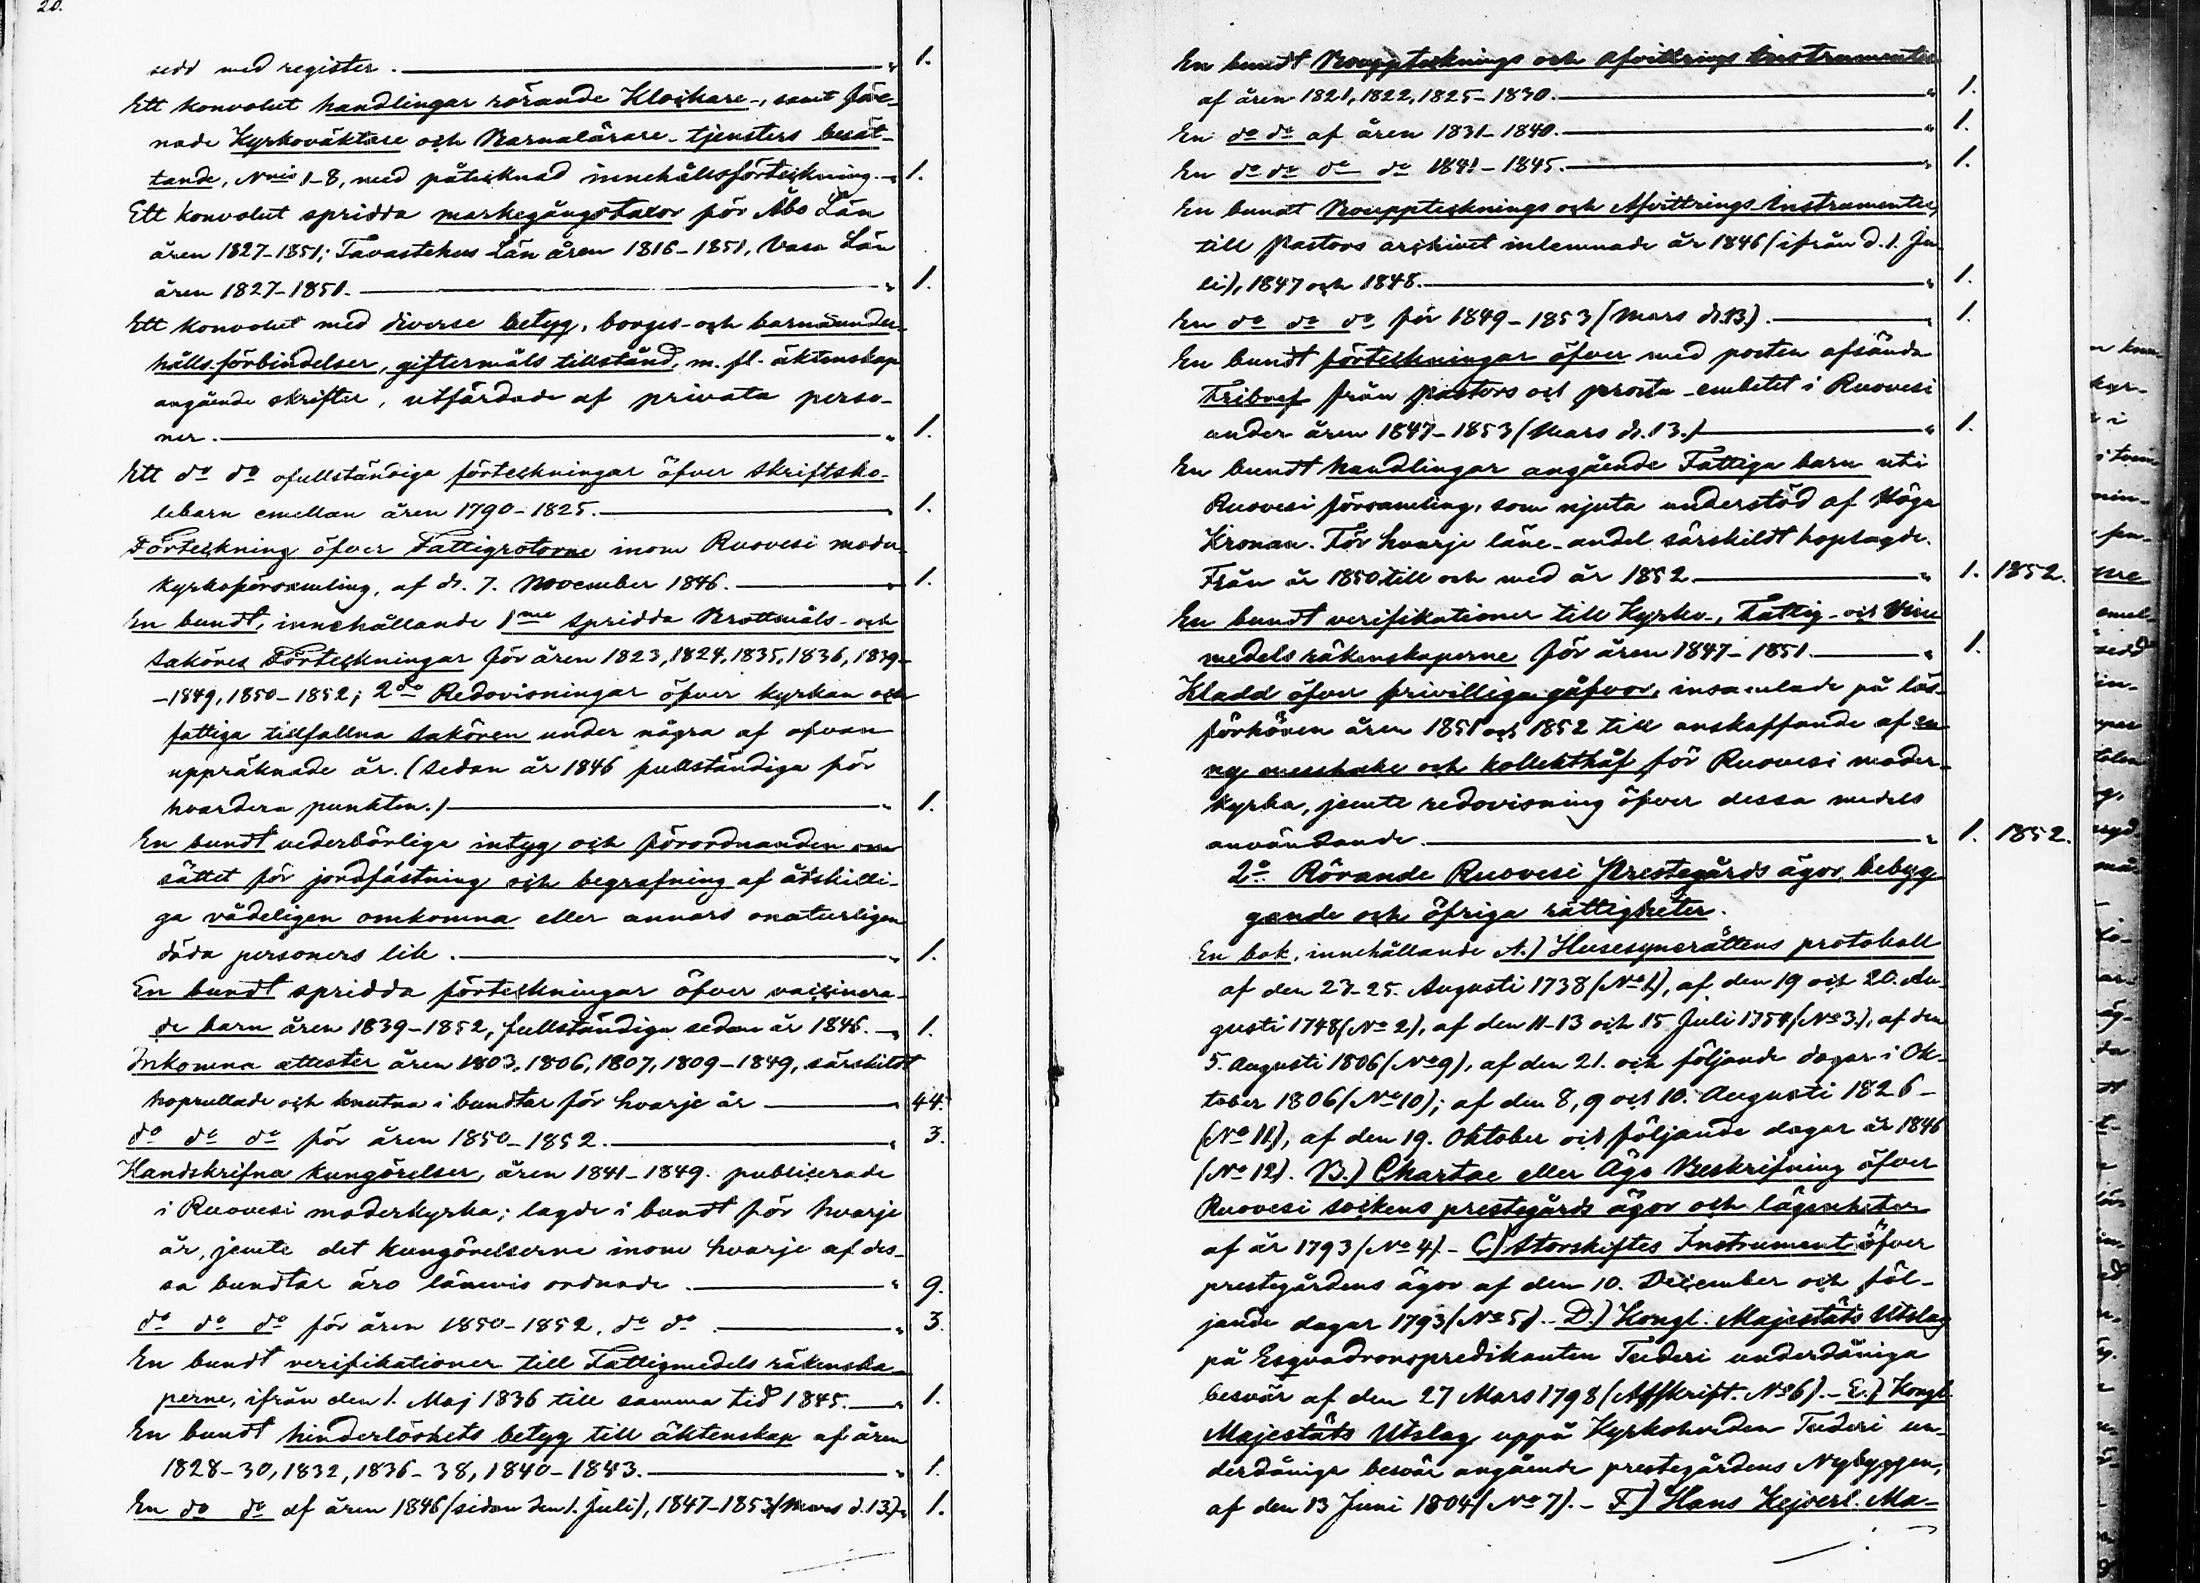 20.
sedd med register. " 1.
Ett konvolut handlingar rörande Klockare-, samt före-
nade Kyrkoväktare och Barnalärare-tjensters besät-
tande, Nris 1-8, med påtecknad innehållsförteckning. " 1.
Ett konvolut spridda markegångstaxor för Åbo Län
åren 1827-1851; Tavastehus Län åren 1816-1851, Vasa Län
åren 1827-1851. " 1.
Ett konvolut med diverse betyg, borges- och barnaunder-
hålls-förbindelser, giftermåls tillstånd, m. fl. äktenskap
angående skrifter, utfärdade af privata perso-
ner. " 1.
Ett do do ofullständiga förteckningar öfver skriftsko-
lebarn emellan åren 1790-1825. " 1.
Förteckning öfver Fattigrotorne inom Ruovesi moder-
kyrkoförsamling, af d. 7. November 1846. " 1.
En bundt, innehållande 1mo spridda Brottmåls- och
saköres Förteckningar för åren 1823, 1824, 1835, 1836, 1839-
-1849, 1850-1852; 2do Redovisningar öfver kyrkan och
fattiga tillfallna sakören under några af ofvan
uppräknade år. (Sedan år 1846 fullständiga för
hvardera punkten.) " 1.
En bundt vederbörliga intyg och förordnanden om
sättet för jordfästning och begrafning af åtskilli-
ga vådeligen omkomna eller annars onaturligen
döda personers lik. " 1.
En bundt spridda förteckningar öfver vaccinera-
de barn åren 1839-1852, fullständiga sedan år 1846. " 1.
Inkomna attester åren 1803, 1806, 1807, 1809-1849, särskildt
hoprullade och knutna i bundtar för hvarje år " 44.
do do do för åren 1850-1852. " 3.
Handskrifna kungörelser, åren 1841-1849. publicerade
i Ruovesi moderkyrka; lagde i bundt för hvarje
år, jemte det kungörelserne inom hvarje af des-
sa bundtar äro länevis ordnade. " 9.
do do do för åren 1850-1852. do do. " 3.
En bundt verifikationer till Fattigmedels räkenska-
perne, ifrån den 1. Maj 1836 till samma tid 1845. " 1.
En bundt hinderlöshets betyg till äktenskap af åren
1828-30, 1832, 1836-38, 1840-1843. " 1.
En do do af åren 1846 (sidan den 1. Juli), 1847-1853 (Mars d. 13.) " 1.
En bundt Bouppteknings och Afvittrings Instrumenter
af åren 1821, 1822, 1825-1830. " 1.
En do do af åren 1831-1840. " 1.
En do do do do 1841-1845. " 1.
En bundt Bouppteknings och Afvittrings Instrumenter,
till Pastors archivet inlemnade år 1846 (ifrån d. 1. Ju-
li), 1847 och 1848. " 1.
En do do do för 1849-1853 (Mars d. 13.). " 1.
En bundt förteckningar öfver med posten afsända
Fribref från Pastors och prosta-embetet i Ruovesi
under åren 1847-1853 (Mars d. 13.) " 1.
En bundt handlingar angående Fattiga barn uti
Ruovesi församling, som njuta understöd af Höga
Kronan. För hvarje läne-andel särskildt hoplagde.
Från år 1850 till och med år 1852 " 1. 1852.
En bundt verifikationer till Kyrko-, Fattig- och Vin
medels räkenskaperne för åren 1847-1851. " 1.
Kladd öfver frivilliga gåfvor, insamlade på läs-
förhören åren 1851 och 1852 till anskaffande af en
ny messhake och kollekthåf för Ruovesi moder-
kyrka, jemte redovisning öfver dessa medels
användande. " 1. 1852.
2o. Rörande Ruovesi Prestegårds ägor, bebyg-
gande och öfriga rättigheter.
En bok, innehållande A.) Husesynerättens protokoll
af den 23-25. Augusti 1738 (No 1), af den 19 och 20. Au-
gusti 1748 (No 2), af den 11-13 och 15 Juli 1754 (No 3.), af den
5. Augusti 1806 (No 9), af den 21. och följande dagar i Ok-
tober 1806 (No 10); af den 8, 9 och 10. Augusti 1826-
(No 11), af den 19. Oktober och följande dagar år 1846
(No 12). B.) Chartae eller Ägo Beskrifning öfver
Ruovesi sockens prestegårds ägor och lägenheter
af år 1793 (No 4). - C.) Storskiftes Instrument öfver
prestegårdens ägor af den 10. December och föl-
jande dagar 1793 (No 5). - D.) Kongl. Majestäts Utslag
på Esqvadronspredikanten Tuderi underdåniga
besvär af den 27 Mars 1798 (Afskrift. No 6). - E.) Kongl.
Majestäts Utslag uppå Kyrkoherden Tuderi un-
derdåniga besvär angående prestegårdens Nybyggen,
af den 13 Juni 1804 (No 7). - F.) Hans Kejserl. Ma-